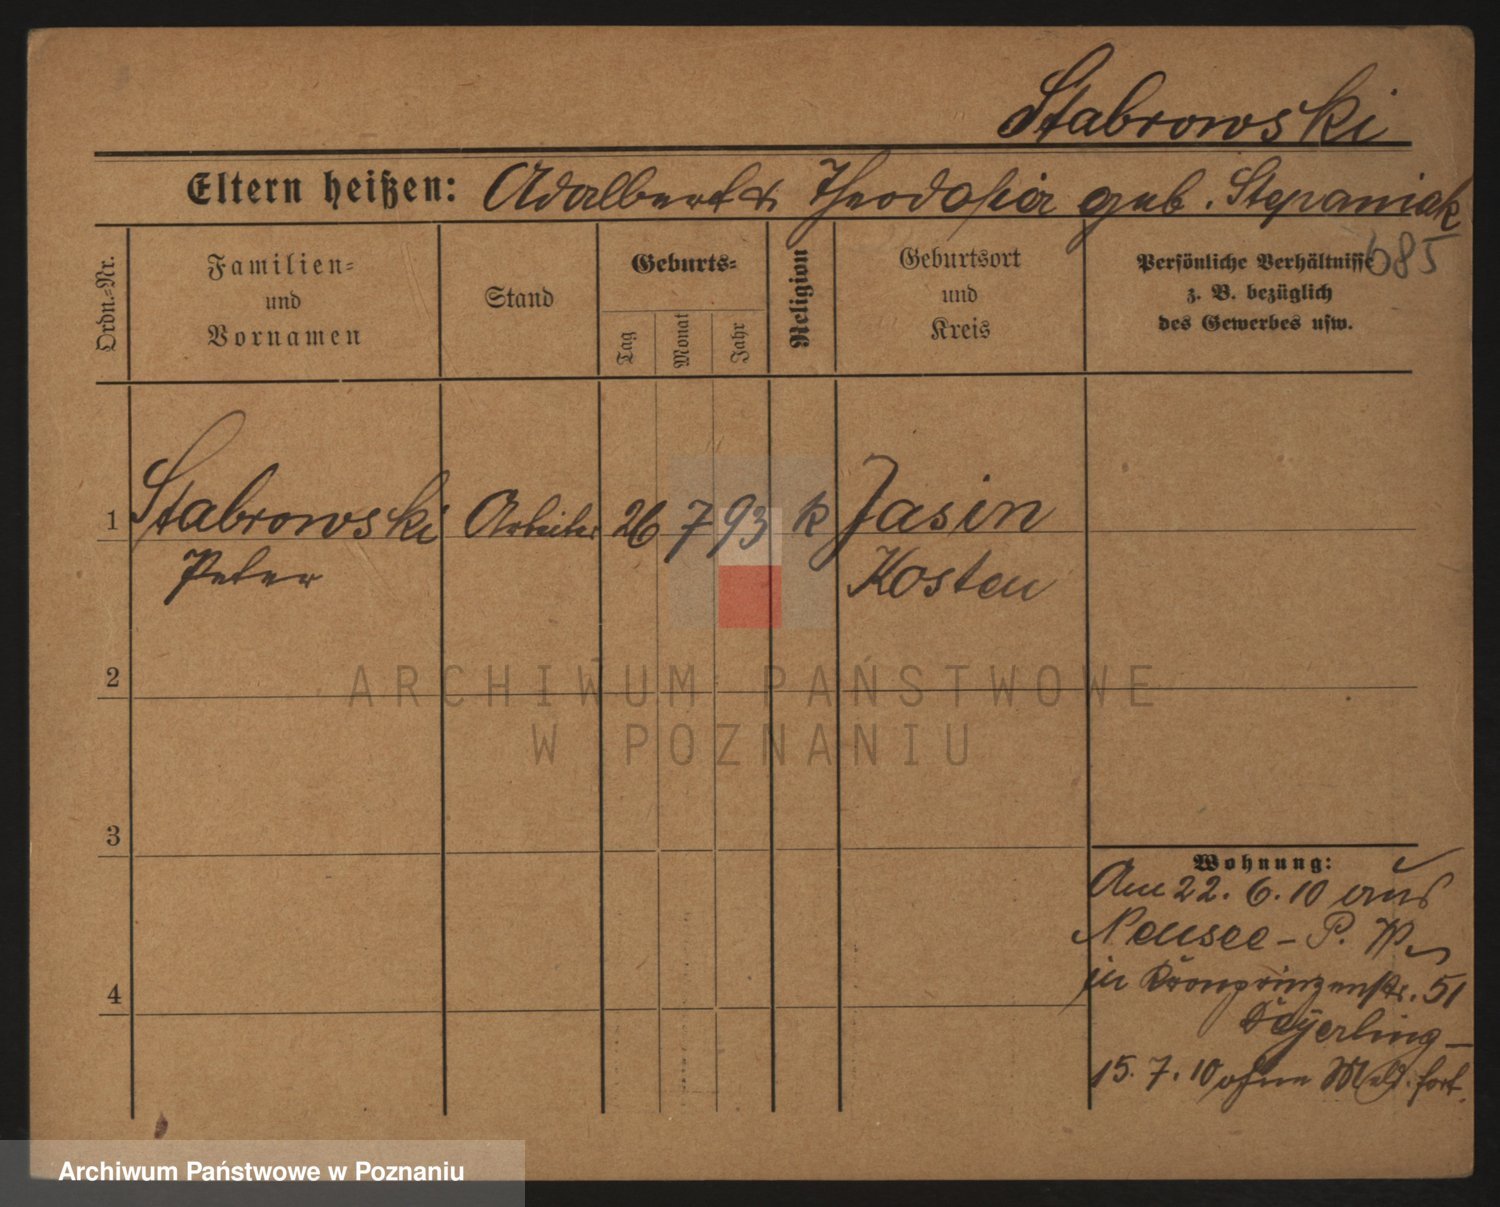 Stabrowski
Eltern heißen: Adalbert & Theodosia geb. Stepaniak
685
Ordn.-Nr.
Familien-
und
Vornamen
Stand
Geburts-
Tag
Monat
Jahr
Religion
Geburtsort
und
Kreis
Persönliche Verhältnisse
z. B. bezüglich
des Gewerbes usw.
1 Stabrowski Arbeiter 26 7 93 k Jasin
Peter Kosten
2
3
4
Wohnung:
Am 22. 6. 10 aus
Neusee - P. W.
in Kronprinzenstr. 51
Beyerling -
15. 7. 10 ohne Meld. fort.
ARCHIWUM PAŃSTWOWE
W POZNANIU
Archiwum Państwowe w Poznaniu